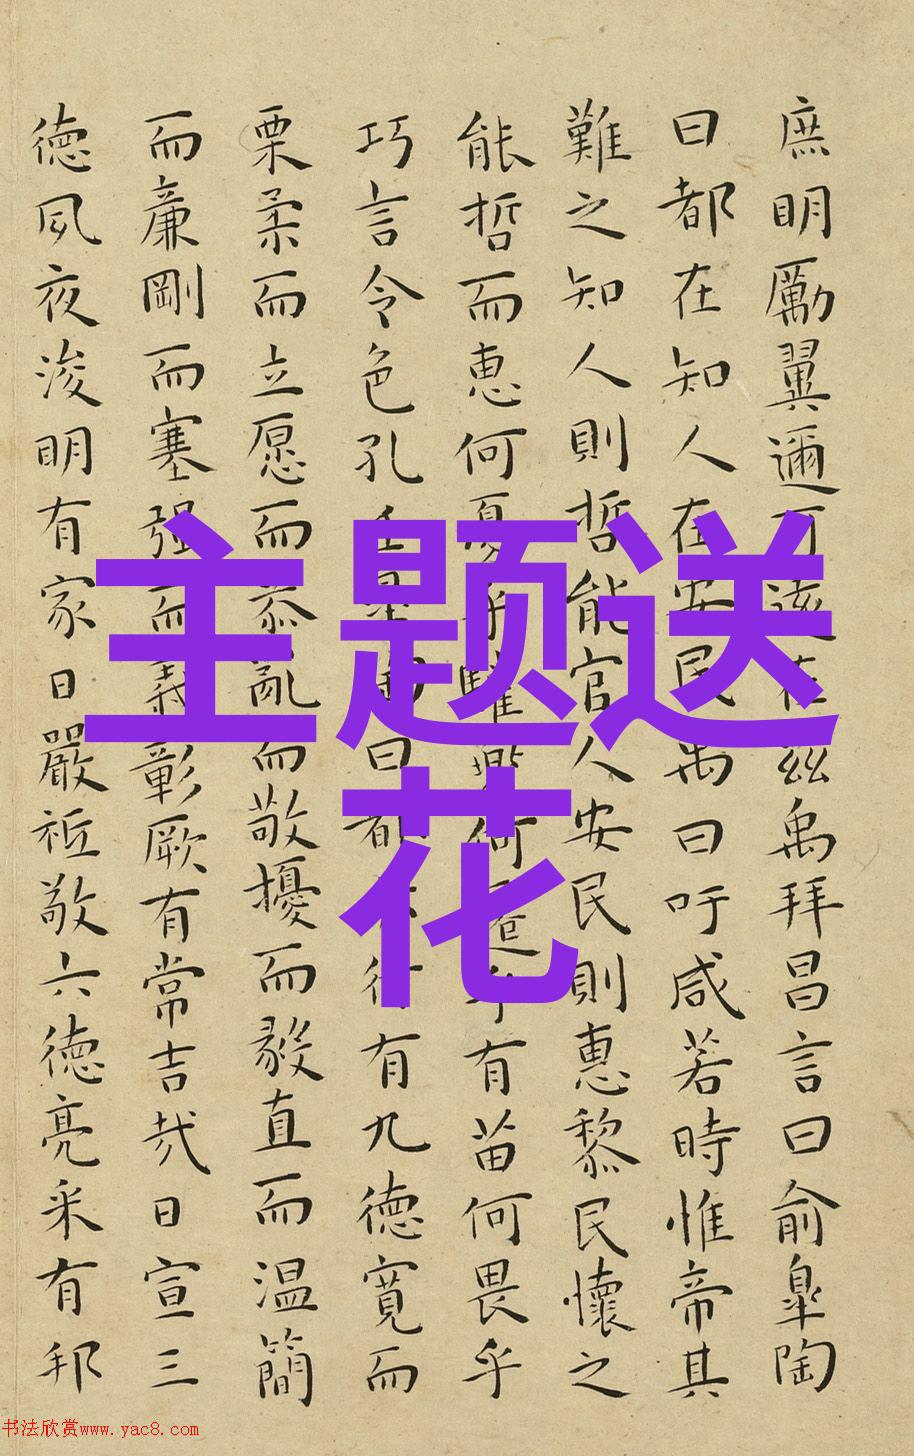 庶明厲翼邇可遠在茲禹拜昌言曰俞皐陶
曰都在知人在安民禹曰吁咸若時惟帝其
難之知人則哲能官人安民則惠黎民懷之
能哲而恵何憂乎驩兜何遷乎有苗何畏乎
巧言令色孔壬 曰都 行有九徳寛而
栗柔而立愿而恭亂而敬擾而毅直而温簡
而廉剛而塞强而義彰厥有常吉㢤日宣三
徳夙夜浚明有家日嚴祗敬六徳亮采有邦
主题送
花
书法欣赏www.yac8.com